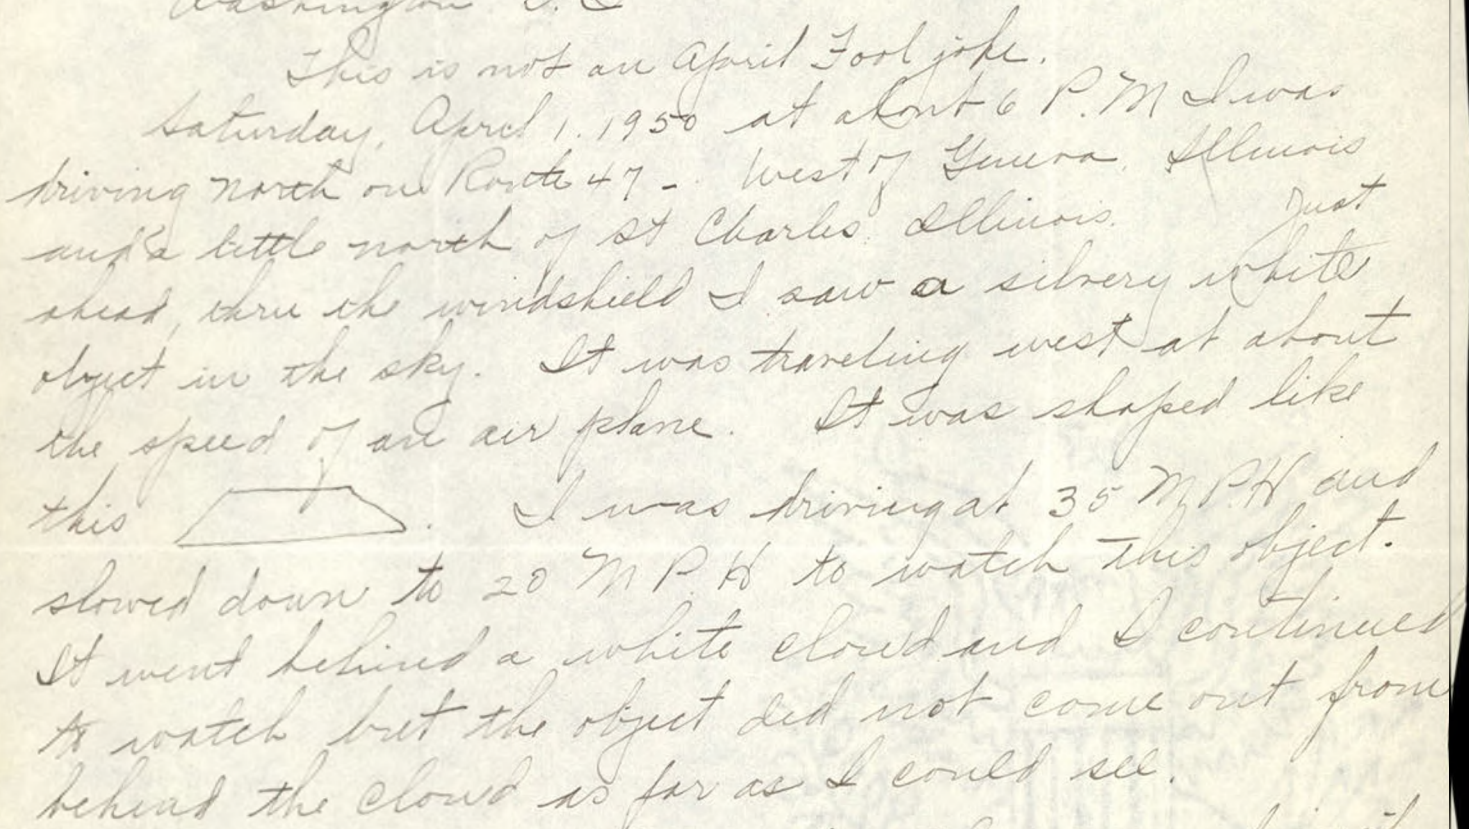 Washington D. C
This is not an April Fool joke.
Saturday, April 1. 1950 at about 6 P. M I was
driving north on Route 47 - West of Geneva, Illinois
and a little north of St Charles Illinois. Just
ahead, thru the windshield I saw a silvery white
object in the sky. It was traveling west at about
the speed of an air plane. It was shaped like
this . I was driving at 35 M P. H and
slowed down to 20 M P. H to watch this object.
It went behind a white cloud and I continued
to watch but the object did not come out from
behind the cloud as far as I could see.